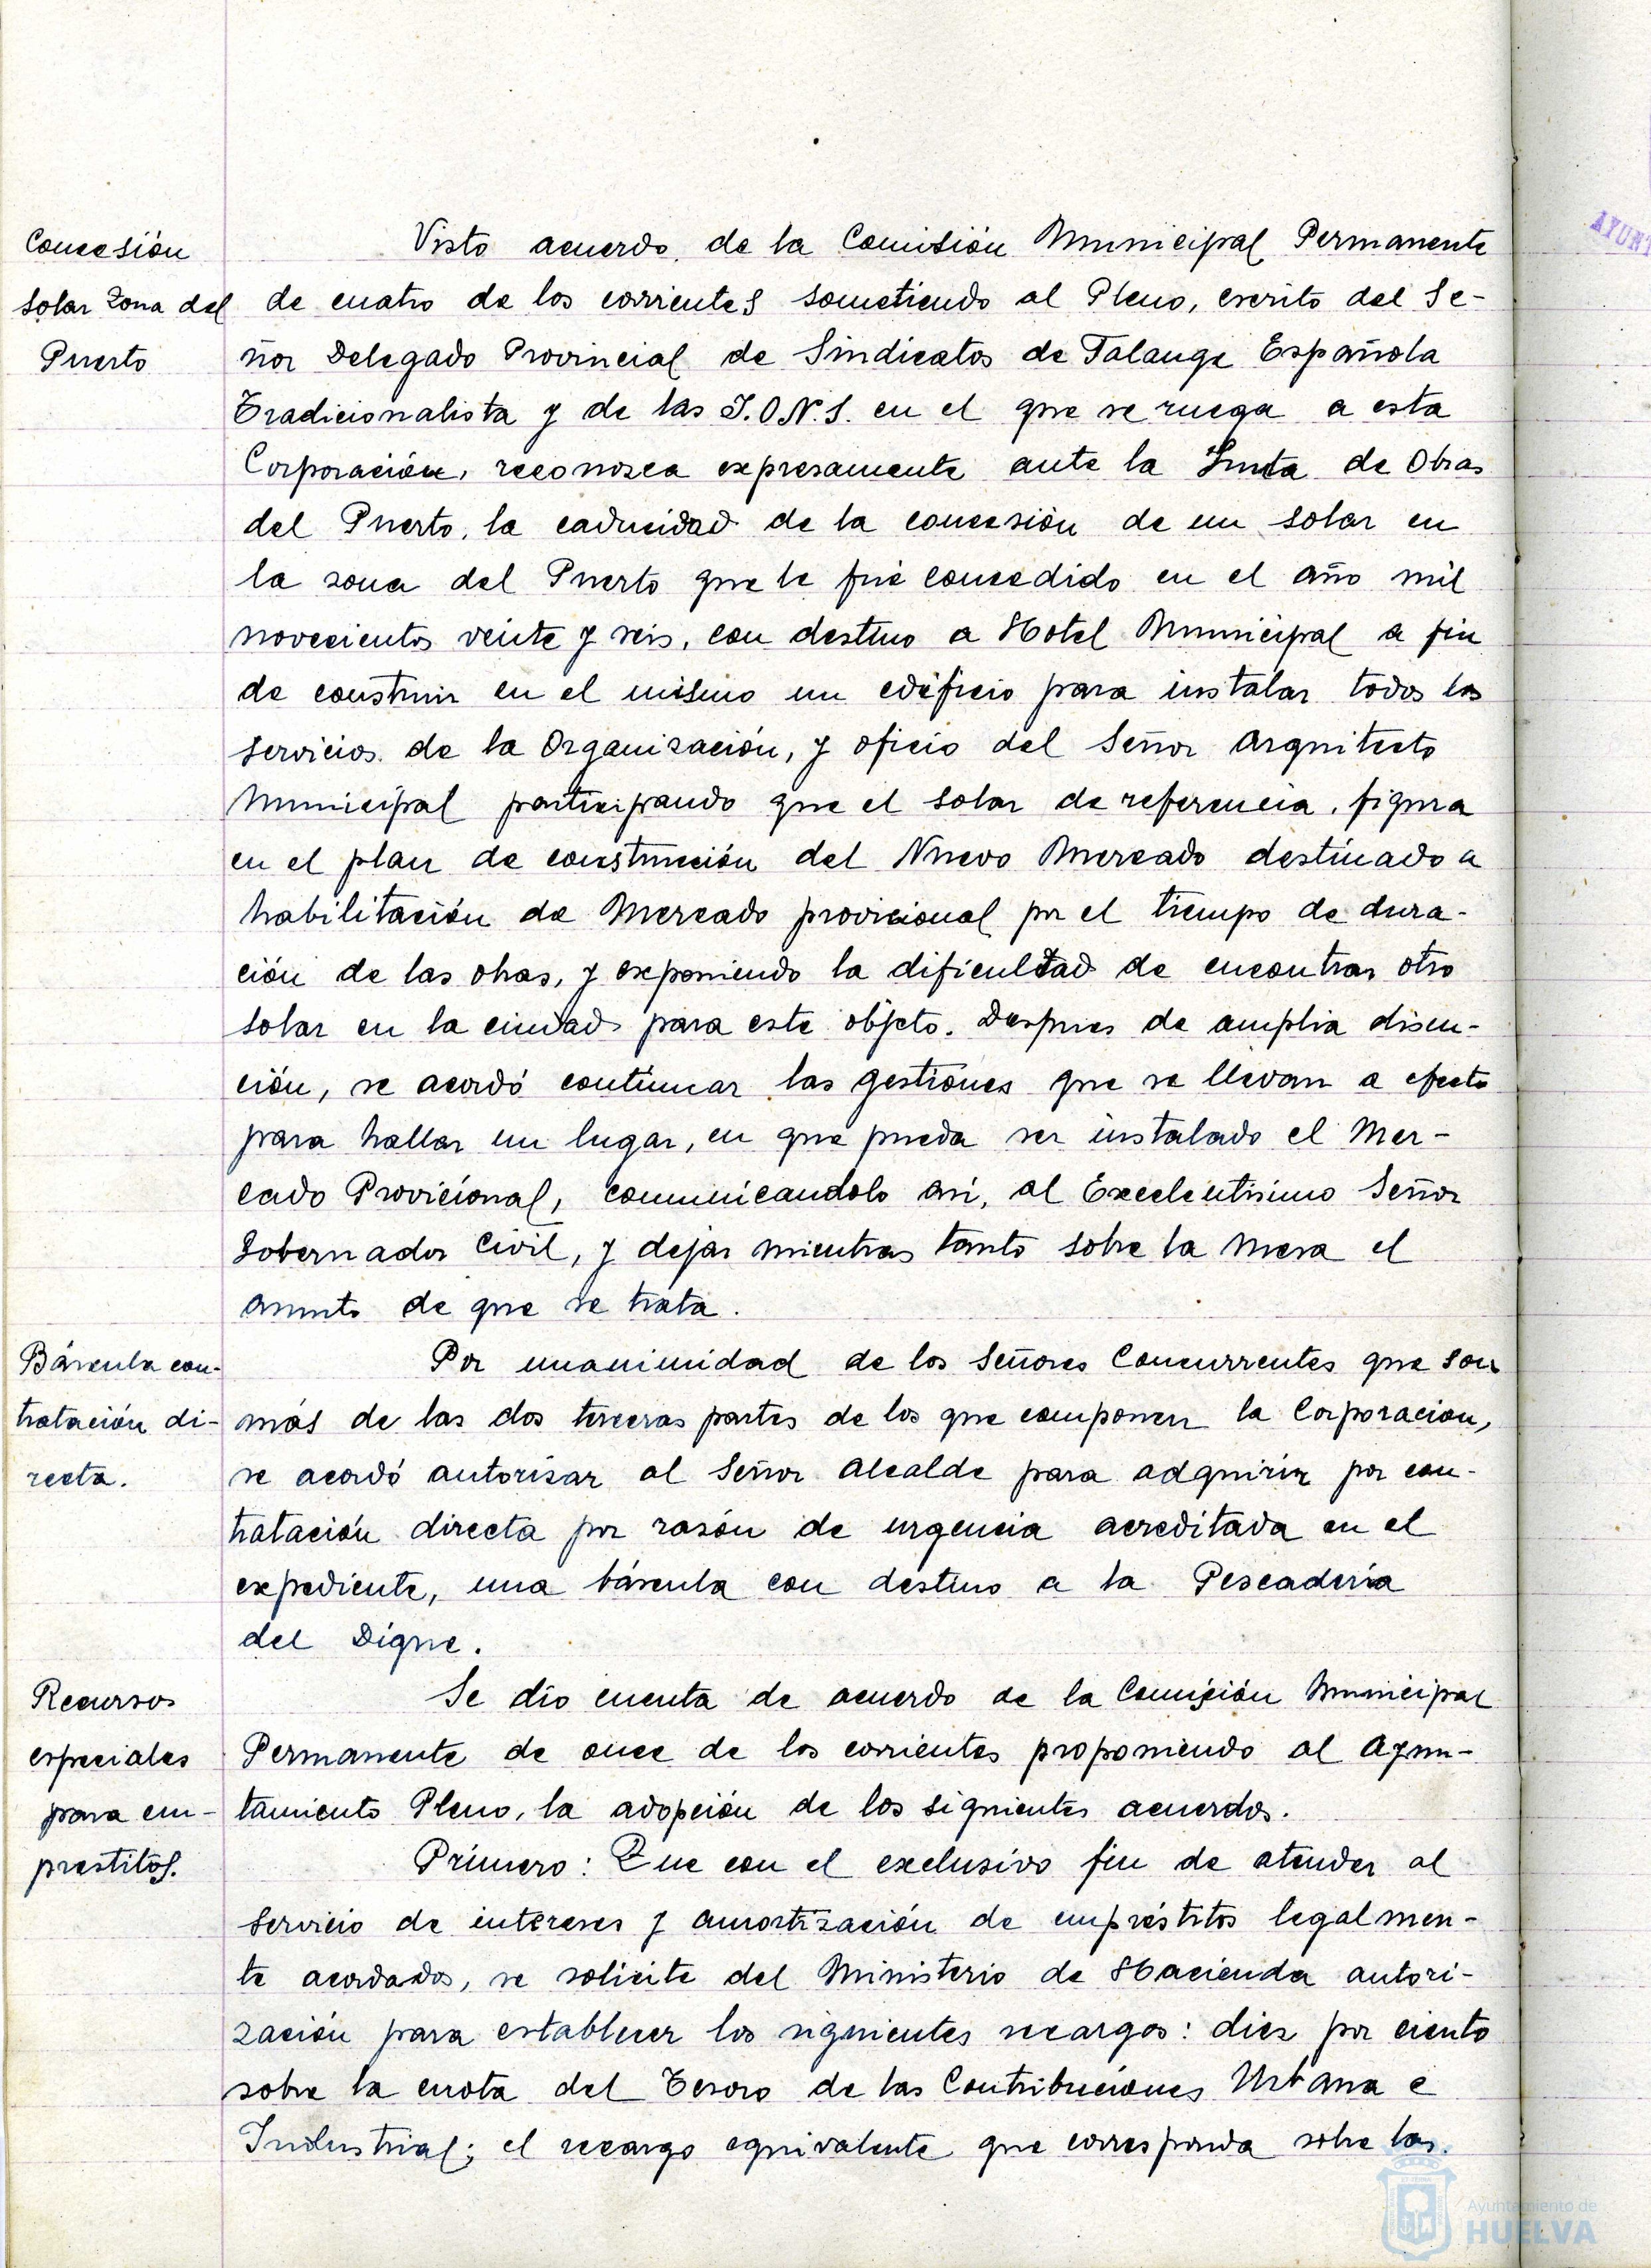 Concesión
solar Zona del
Puerto
Visto acuerdo de la Comisión Municipal Permanente
de cuatro de los corrientes sometiendo al Pleno, escrito del Se-
ñor Delegado Provincial de Sindicatos de Falange Española
Tradicionalista y de las J.O.N.S. en el que se ruega a esta
Corporación, reconozca expresamente ante la Junta de Obras
del Puerto, la caducidad de la concesión de un solar en
la zona del Puerto que le fué concedido en el año mil
novecientos veinte y seis, con destino a Hotel Municipal a fin
de construir en el mismo un edificio para instalar todos los
servicios de la Organización, y oficio del Señor Arquitecto
Municipal participando que el solar de referencia, figura
en el plan de construcción del Nuevo Mercado destinado a
habilitación de Mercado provicional por el tiempo de dura-
ción de las obras, y exponiendo la dificultad de encontrar otro
solar en la ciudad para este objeto. Despues de amplia discu-
ción, se acordó continuar las gestiones que se llevan a efecto
para hallar un lugar, en que pueda ser instalado el Mer-
cado Provicional, comunicandolo asi, al Excelentisimo Señor
Gobernador Civil, y dejar mientras tanto sobre la mesa el
asunto de que se trata.
Báscula con-
tratación di-
recta.
Por unanimidad de los Señores Concurrentes que son
más de las dos terceras partes de los que componen la Corporacion,
se acordó autorizar al Señor Alcalde para adquirir por con-
tratación directa por razón de urgencia acreditada en el
expediente, una báscula con destino a la Pescadería
del Dique.
Recursos
especiales
para em-
prestitos.
Se dio cuenta de acuerdo de la Comisión Municipal
Permanente de once de los corrientes proponiendo al Ayun-
tamiento Pleno, la adopción de los siguientes acuerdos.
Primero: Que con el exclusivo fin de atender al
servicio de intereses y amortización de empréstitos legalmen-
te acordados, se solicite del Ministerio de Hacienda autori-
zación para establecer los siguientes recargos: diez por ciento
sobre la cuota del Tesoro de las Contribuciones Urbana e
Industrial; el recargo equivalente que corresponda sobre las
AYUNT
Ayuntamiento de
HUELVA